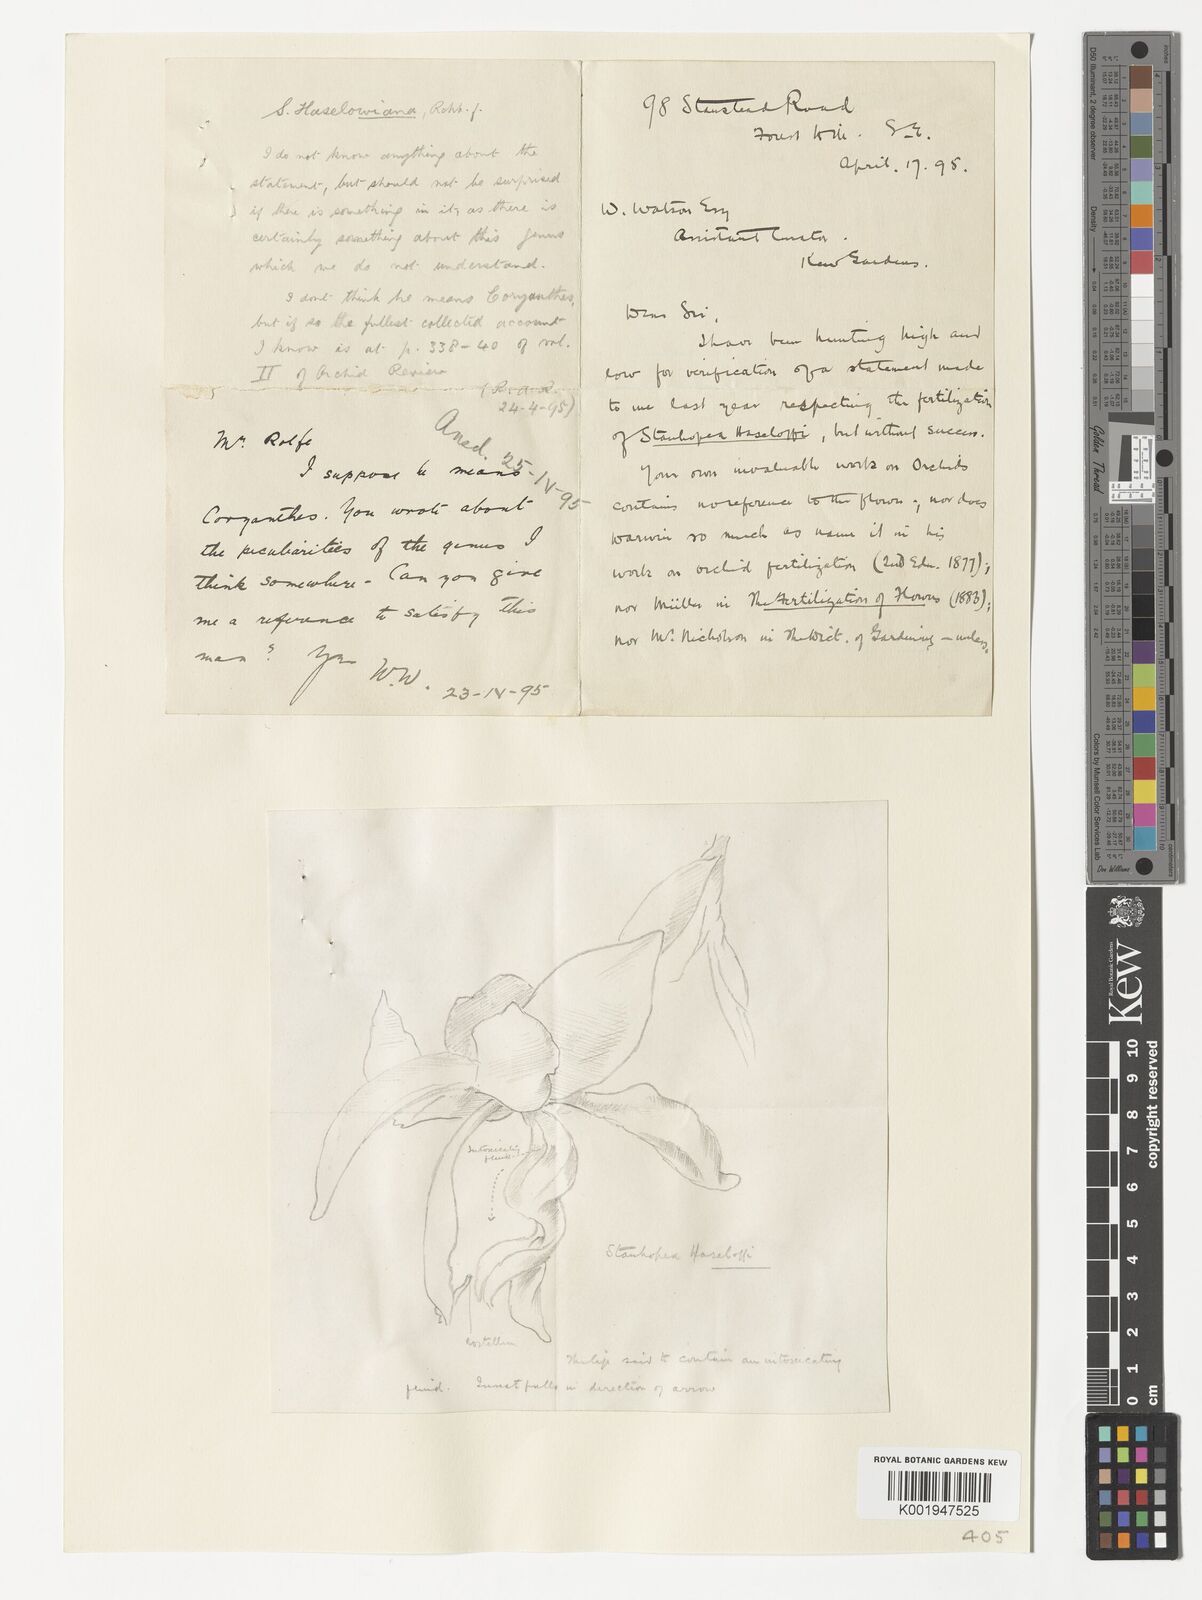 S. Haselowiana, Rchb. f.
I do not know anything about the
statement, but should not be surprised
if there is something in it, as there is
certainly something about this genus
which we do not understand.
I dont think he means Coryanthes,
but if so the fullest collected account
I know is at p. 338-40 of vol.
II of Orchid Review
(R.A.R.
24-4-95)
Ansd. 25-IV-95
Mr. Rolfe
I suppose he means
Coryanthes. You wrote about
the peculiarities of the genus I
think somewhere - Can you give
me a reference to satisfy this
man?
W.W. 23-IV-95
98 Stanstead Road
Forest Hill. S.E.
April. 17. 95.
W. Watson Esq
Assistant Curator.
Kew Gardens.
Dear Sir,
I have been hunting high and
low for verification of a statement made
to me last year respecting the fertilization
of Stanhopea Haseloffi, but without success.
Your own invaluable work on Orchids
contains no reference to the flower; nor does
Darwin so much as name it in his
work on orchid fertilization (2nd Edn. 1877);
nor Müller in The Fertilization of Flowers (1883);
nor Mr. Nicholson in The Dict. of Gardening - unless,
Intoxicating
fluid
Stanhopea Haseloffi
rostellum
The lip said to contain an intoxicating
fluid. Insect falls in direction of arrow
ROYAL BOTANIC GARDENS KEW
K001947525
405
Royal Botanic Gardens
Kew
copyright reserved
0 1 2 3 4 5 6 7 8 9 10
cm
D50 Illuminant, 2 degree observer
Density
Golden Thread
Colors by Munsell Color Services Lab
inches
centimetres
Don Williams